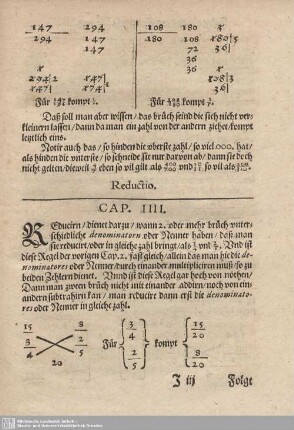 147 294
294 147
147
108 180
180 108
72
36
36
Für kompt ½. Für kompt
Daß soll man aber wissen / das brüch seind die sich nicht ver-
kleinern lassen / dann da man ein zahl von der andern ziehet / kompt
letztlich eins.
Notir auch das / so hinden die oberste zahl / so viel 000. hat /
als hinden die unterste / so schneide sie nur darvon ab / dann sie doch
nicht gelten / dieweil eben so vil gilt als und so vil als
Reductio.
CAP. IIII.
REducirn / dienet darzu / wann 2. oder mehr brüch unter-
schiedliche denominatorn oder Nenner haben / daß man
sie reducirt / oder in gleiche zahl bringt / als ¾ und ⅖. Und ist
diese Regel der vorigen Cap. 2. fast gleich / allein das man hie die de-
nominatores oder Nenner / durch einander multipliciren muß / so zu
beiden Zehlern dienet. Und ist diese Regel gar hoch von nöthen /
Dann man zween brüch nicht mit einander addirn / noch von ein-
andern subtrahirn kan / man reducire dann erst die denominato-
res oder Nenner in gleiche zahl.
15 8
3 2
4 5
20
Für 3 4 2 5 kompt 15 20 8 20
J iij Folgt